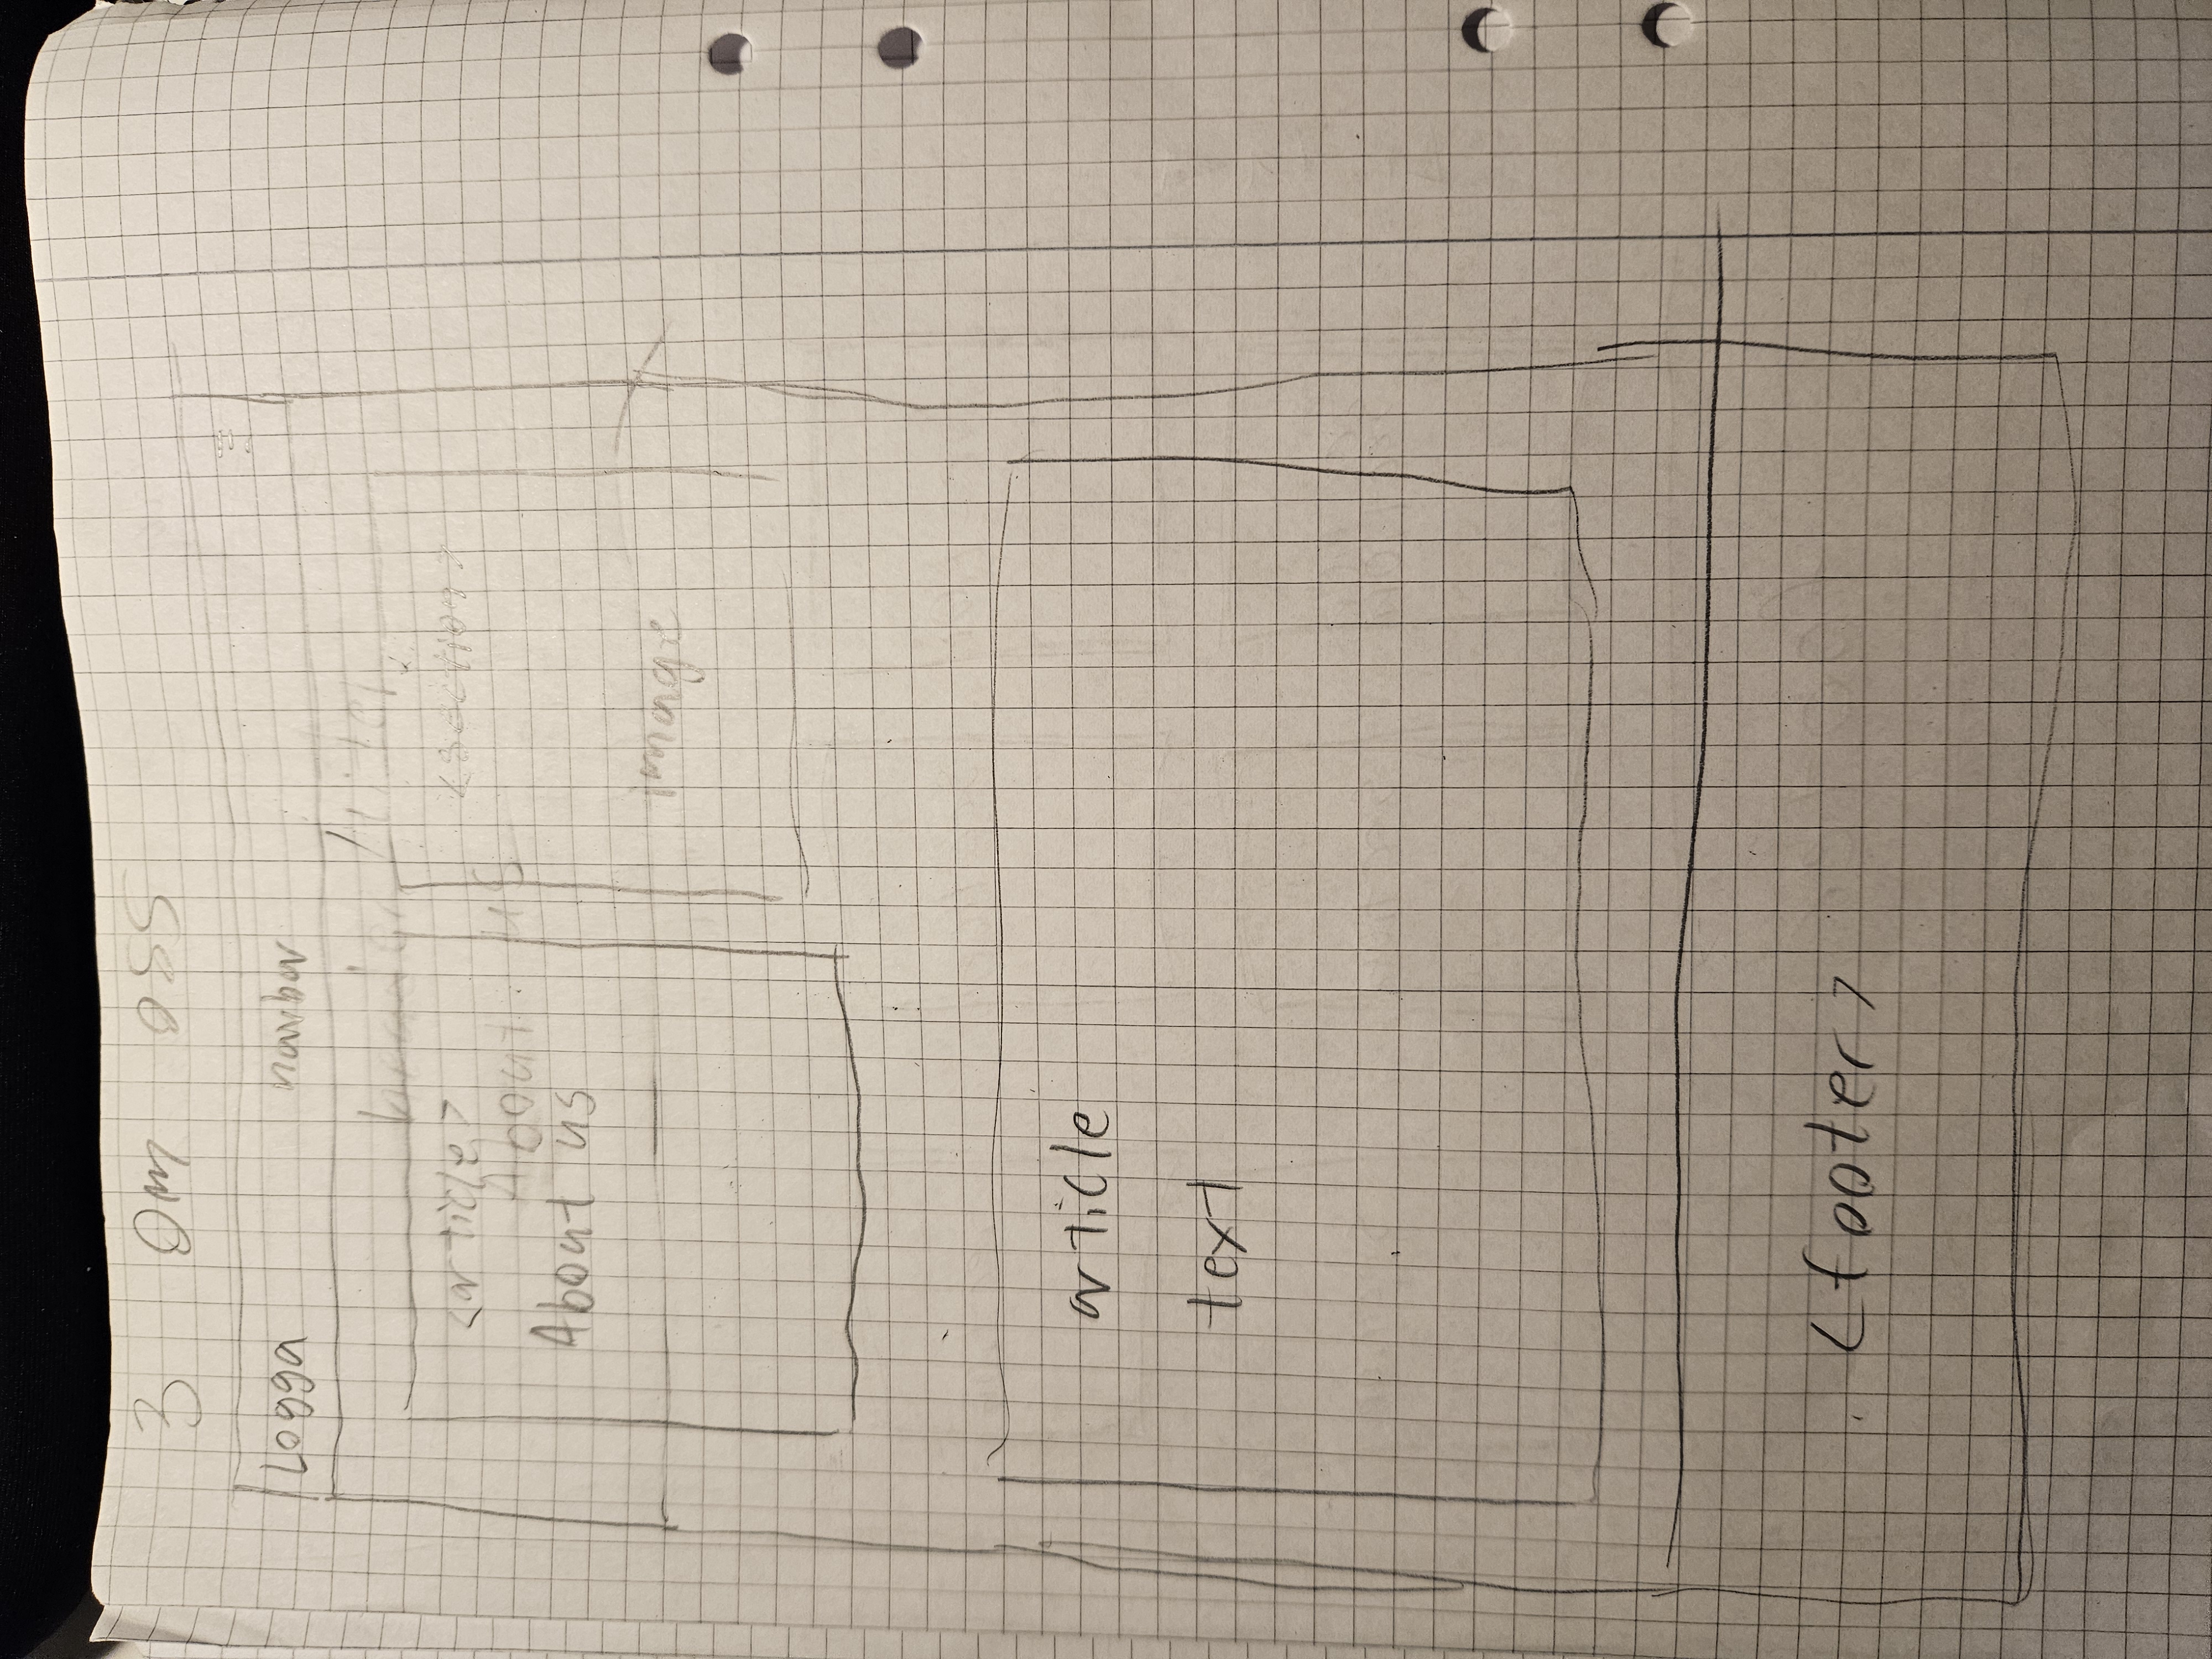 3 Om oss
Logga navbar
<article>
About us
About us
<section>
image
article
text
<footer>